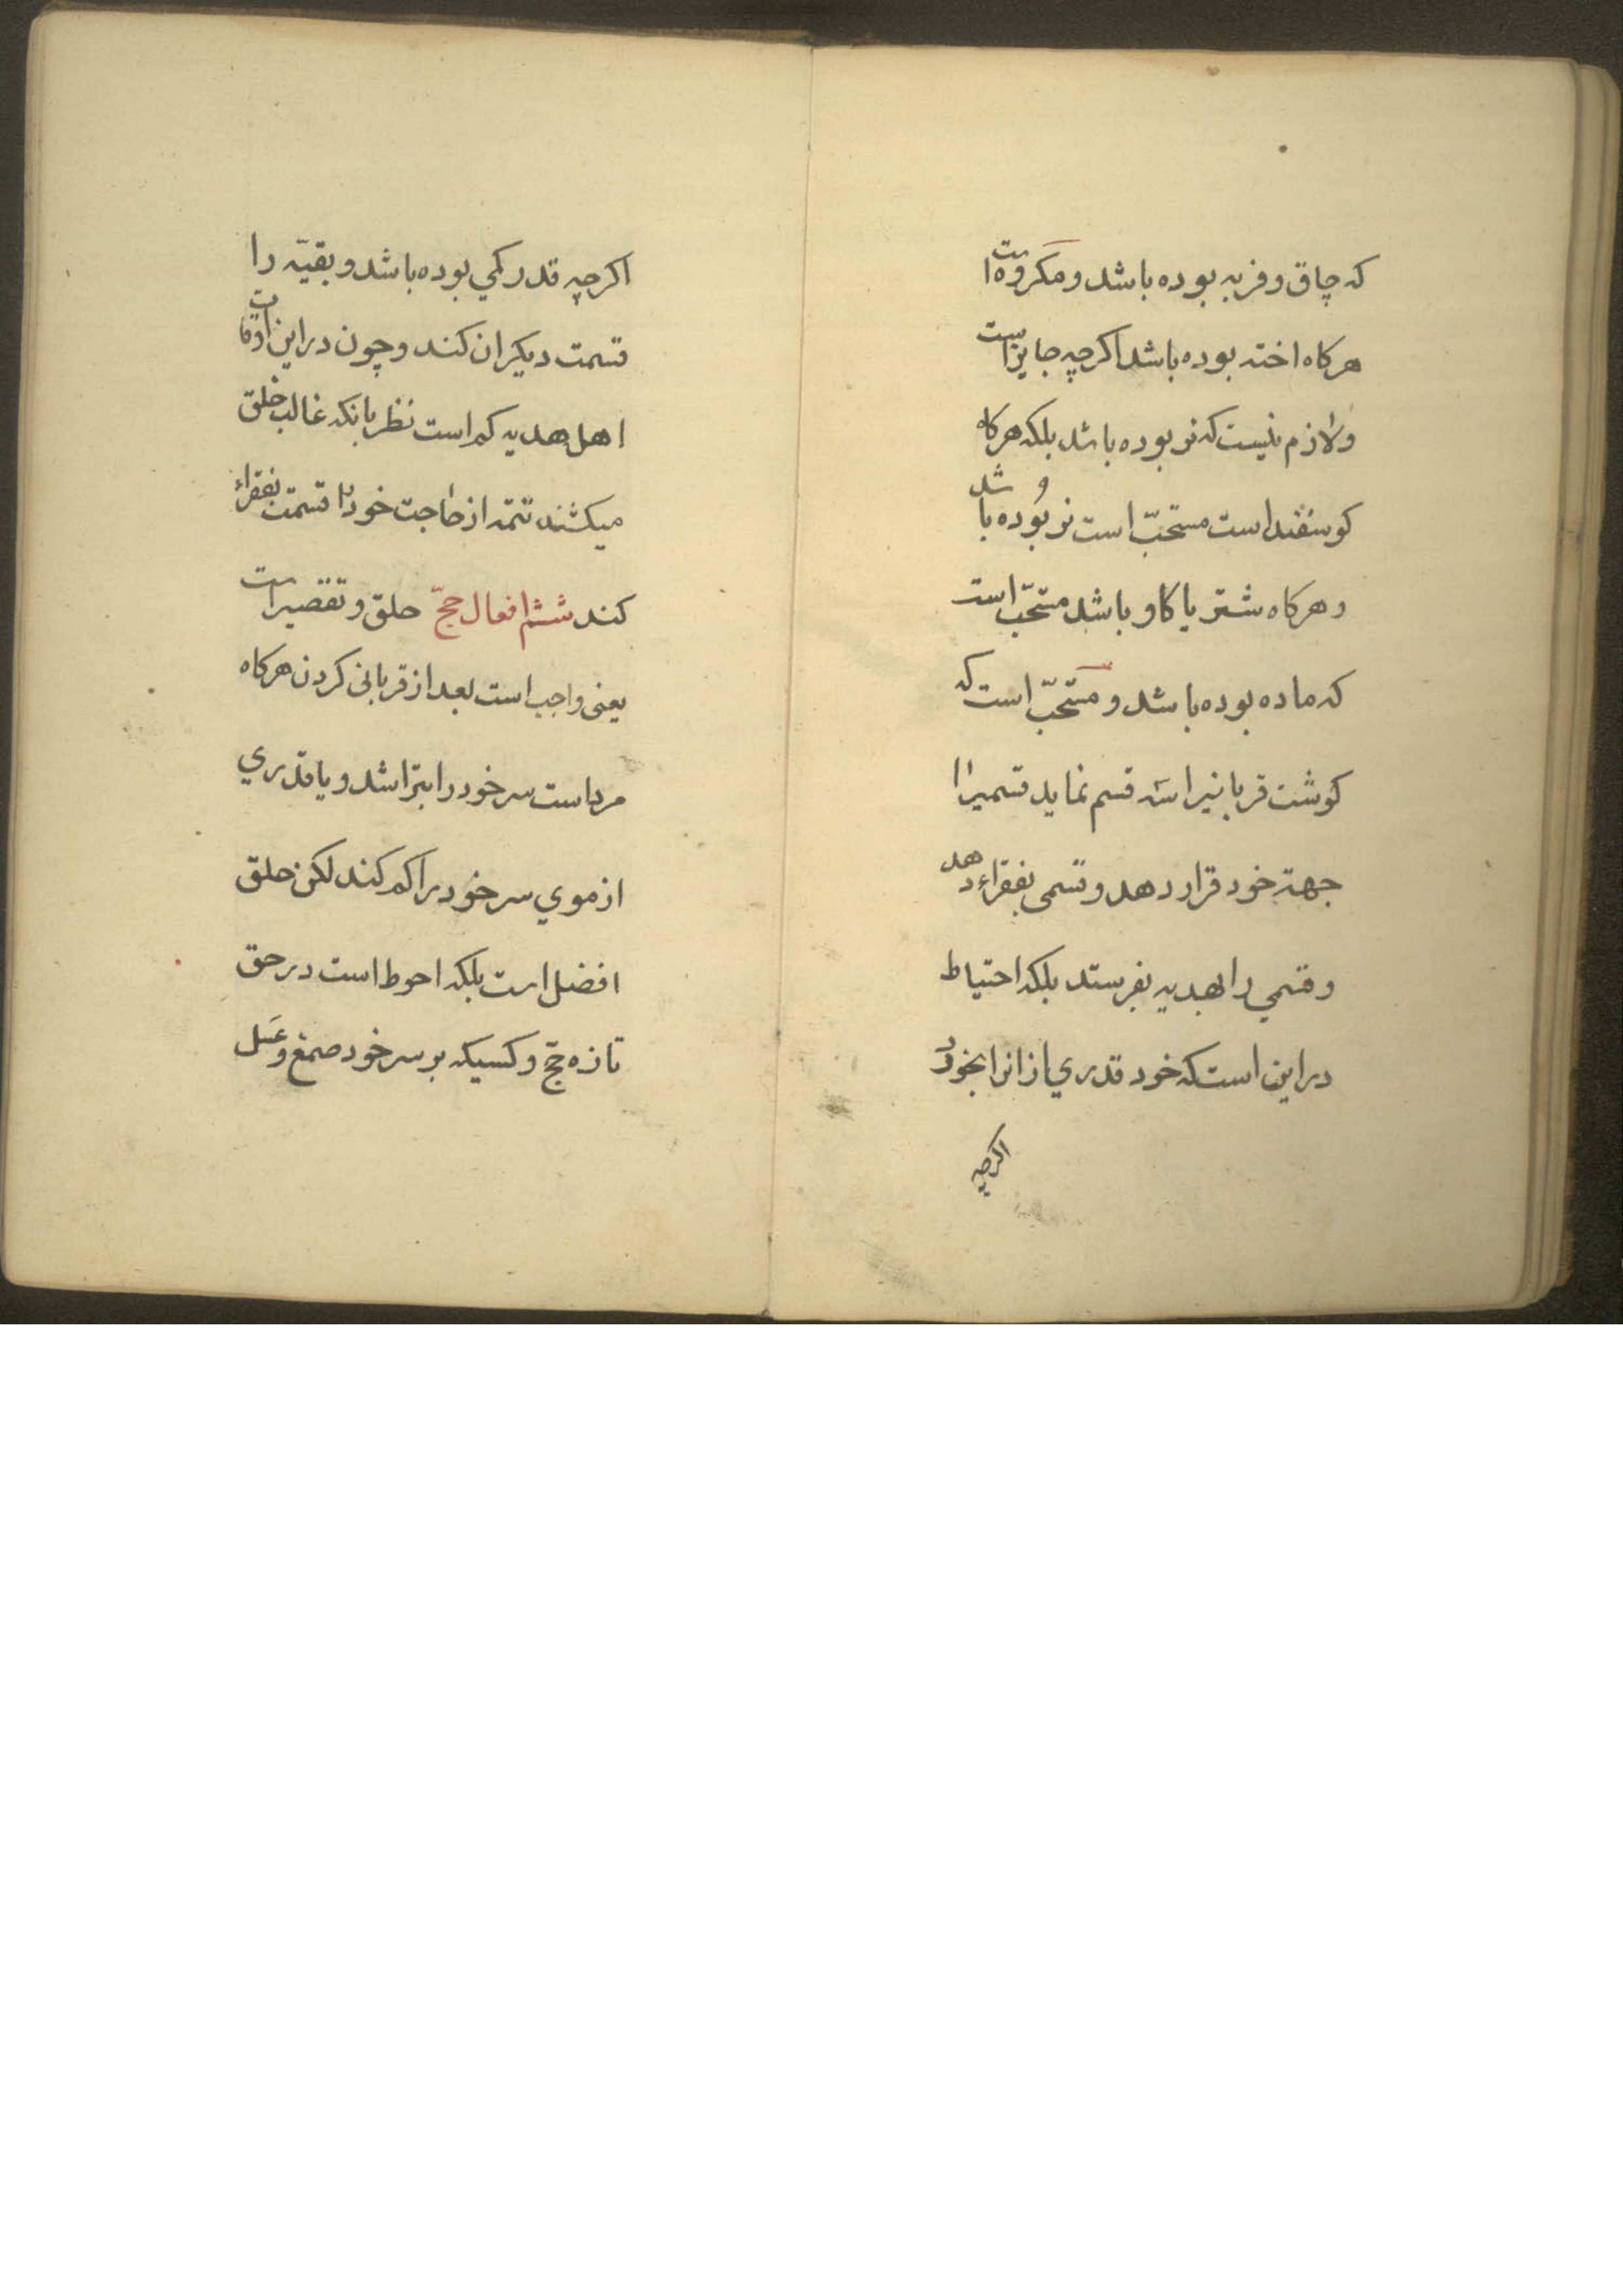 که چاق و فربه بوده باشد و مکروه است
هرکاه اخته بوده باشد اکرچه جایز است
و لازم نیست که نر بوده باشد بلکه هرکاه
کوسفند است مستحبّ است نر بوده باشد
و هرکاه شتر یا کاو باشد مستحبّ است
که ماده بوده باشد و مستحبّ است که
کوشت قربانیرا سه قسم نماید قسمیرا
جهة خود قرار دهد و قسمی بفقراء دهد
و قسمی را بهدیه بفرستد بلکه احتیاط
در این است که خود قدری از انرا بخورد
اکرچه
اکرچه قدر کمی بوده باشد و بقیّه را
قسمت دیکران کند و چون در این اوقات
اهل هدیه کم است نظر بانکه غالب خلق
میکشند تتمه از حاجت خود را قسمت بفقراء
کند ششم افعال حجّ حلق و تقصیر است
یعنی واجب است بعد از قربانی کردن هرکاه
مرد است سر خود را بتراشد و یا قدری
از موی سر خود را کم کند لکن حلق
افضل است بلکه احوط است در حق
تازه حجّ و کسیکه بر سر خود صمغ و عسل